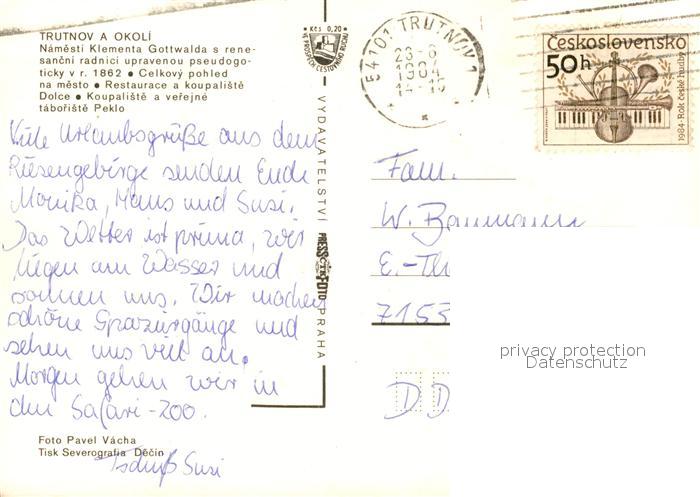 TRUTNOV A OKOLÍ
Náměstí Klementa Gottwalda s rene-
sanční radnicí upravenou pseudogo-
ticky v r. 1862 ● Celkový pohled
na město ● Restaurace a koupaliště
Dolce ● Koupaliště a veřejné
tábořiště Peklo
Kčs 0,20
VE PROSPĚCH CESTOVNÍHO RUCHU
54101 TRUTNOV 1
Československo
50h
1984-Rok české hudby
Viele Urlaubsgrüße aus dem
Riesengebirge senden Euch
Monika, Hans und Susi.
Das Wetter ist prima, wir
liegen am Wasser und
sonnen uns. Wir machen
schöne Spaziergänge und
sehen uns viel an.
Morgen gehen wir in
den Safari-Zoo.
Tschüß Susi
VYDAVATELSTVÍ PRESSFOTO PRAHA
ČTK
Fam.
W. Baumann
E.-Th
7153
DD
privacy protection
Datenschutz
Foto Pavel Vácha
Tisk Severografia Děčín